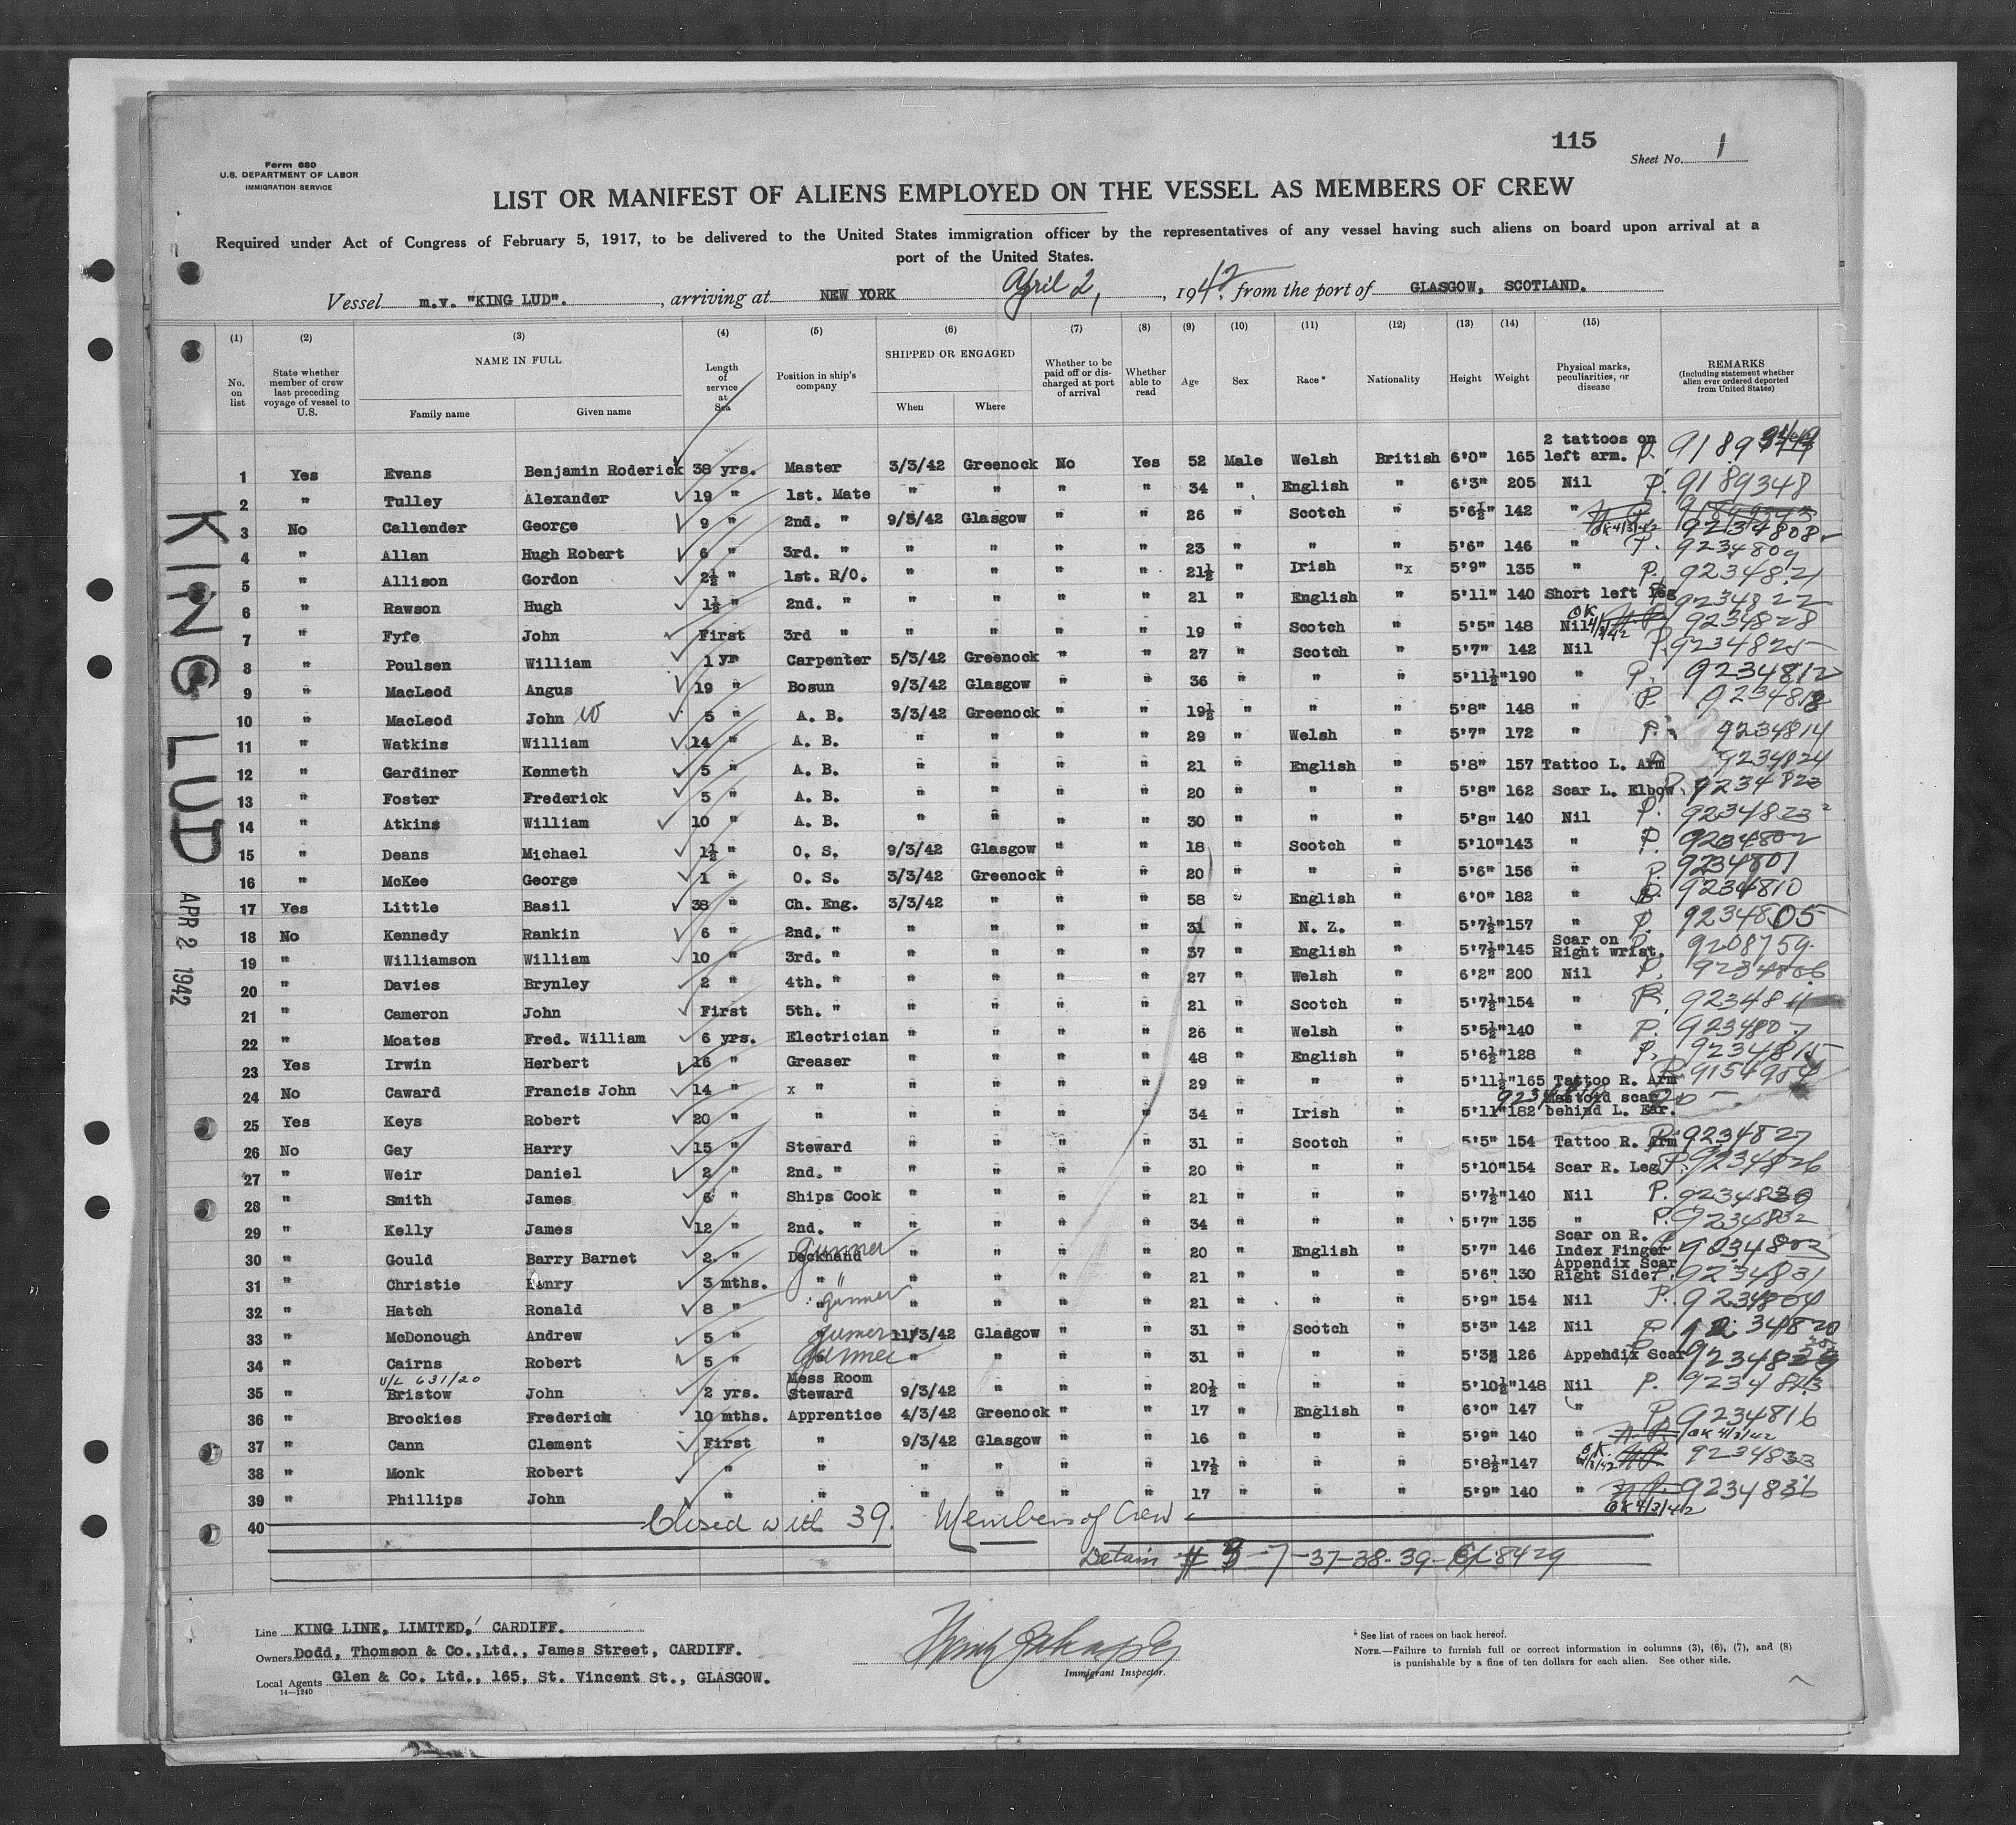 115
Sheet No. 1
Form 680
U.S. DEPARTMENT OF LABOR
IMMIGRATION SERVICE
LIST OR MANIFEST OF ALIENS EMPLOYED ON THE VESSEL AS MEMBERS OF CREW
Required under Act of Congress of February 5, 1917, to be delivered to the United States immigration officer by the representatives of any vessel having such aliens on board upon arrival at a
port of the United States.
Vessel m.v. "KING LUD". , arriving at NEW YORK April 2, , 1942, from the port of GLASGOW, SCOTLAND.
(1) (2) (3) (4) (5) (6) (7) (8) (9) (10) (11) (12) (13) (14) (15)
No. on list State whether member of crew last preceding voyage of vessel to U.S. NAME IN FULL Family name Given name Length of service at Sea Position in ship's company SHIPPED OR ENGAGED When Where Whether to be paid off or discharged at port of arrival Whether able to read Age Sex Race * Nationality Height Weight Physical marks, peculiarities, or disease REMARKS (Including statement whether alien ever ordered deported from United States)
1 Yes Evans Benjamin Roderick 38 yrs. Master 3/3/42 Greenock No Yes 52 Male Welsh British 6'0" 165 2 tattoos on left arm. P.
2 " Tulley Alexander 19 " 1st. Mate " " " " 34 " English " 6'3" 205 Nil P. 9189348
3 No Callender George 9 " 2nd. " 9/3/42 Glasgow " " 26 " Scotch " 5'6½" 142 " OK 4/3/42 9234808
4 " Allan Hugh Robert 6 " 3rd. " " " " " 23 " " " 5'6" 146 " P. 9234809
5 " Allison Gordon 2½ " 1st. R/O. " " " " 21½ " Irish "x 5'9" 135 " P. 9234821
6 " Rawson Hugh 1½ " 2nd. " " " " " 21 " English " 5'11" 140 Short left leg 9234822
7 " Fyfe John First 3rd " " " " " 19 " Scotch " 5'5" 148 Nil OK 4/3/42 9234828
8 " Poulsen William 1 yr Carpenter 5/3/42 Greenock " " 27 " Scotch " 5'7" 142 Nil P. 9234825
9 " MacLeod Angus 19 " Bosun 9/3/42 Glasgow " " 36 " " " 5'11½" 190 " P. 9234812
10 " MacLeod John W 5 " A. B. 3/3/42 Greenock " " 19½ " " " 5'8" 148 " P. 9234818
11 " Watkins William 14 " A. B. " " " " 29 " Welsh " 5'7" 172 " P. 9234814
12 " Gardiner Kenneth 5 " A. B. " " " " 21 " English " 5'8" 157 Tattoo L. Arm P. 9234824
13 " Foster Frederick 5 " A. B. " " " " 20 " " " 5'8" 162 Scar L. Elbow P. 9234823
14 " Atkins William 10 " A. B. " " " " 30 " " " 5'8" 140 Nil P.
15 " Deans Michael 1½ " O. S. 9/3/42 Glasgow " " 18 " Scotch " 5'10" 143 " P. 9234802
16 " McKee George 1 " O. S. 3/3/42 Greenock " " 20 " " " 5'6" 156 " P. 9234801
17 Yes Little Basil 38 " Ch. Eng. 3/3/42 " " " 58 " English " 6'0" 182 " P. 9234810
18 No Kennedy Rankin 6 " 2nd. " " " " " 31 " N. Z. " 5'7½" 157 " P. 9234805
19 " Williamson William 10 " 3rd. " " " " " 37 " English " 5'7½" 145 Scar on Right wrist. P. 9208759
20 " Davies Brynley 2 " 4th. " " " " " 27 " Welsh " 6'2" 200 Nil P. 9234806
21 " Cameron John First 5th. " " " " " 21 " Scotch " 5'7½" 154 " P. 9234811
22 " Moates Fred. William 6 yrs. Electrician " " " " 26 " Welsh " 5'5½" 140 " P. 9234807
23 Yes Irwin Herbert 16 " Greaser " " " " 48 " English " 5'6½" 128 " P. 9234815
24 No Caward Francis John 14 " x " " " " " 29 " " " 5'11½" 165 Tattoo R. Arm P. 9154954
25 Yes Keys Robert 20 " " " " " " 34 " Irish " 5'11" 182 Mastoid scar behind L. Ear.
26 No Gay Harry 15 " Steward " " " " 31 " Scotch " 5'5" 154 Tattoo R. Arm P. 9234827
27 " Weir Daniel 2 " 2nd. " " " " " 20 " " " 5'10" 154 Scar R. Leg P. 9234826
28 " Smith James 6 " Ships Cook " " " " 21 " " " 5'7½" 140 Nil P. 9234830
29 " Kelly James 12 " 2nd. " " " " " 34 " " " 5'7" 135 " P. 9234832
30 " Gould Barry Barnet 2 " Deckhand gunner " " " " 20 " English " 5'7" 146 Scar on R. Index Finger 9234803
31 " Christie Henry 3 mths. " " " " " " 21 " " " 5'6" 130 Appendix Scar Right Side P. 9234831
32 " Hatch Ronald 8 " " gunner " " " " 21 " " " 5'9" 154 Nil P. 9234804
33 " McDonough Andrew 5 " gunner 11/3/42 Glasgow " " 31 " Scotch " 5'3" 142 Nil P. 9234820
34 " Cairns Robert 5 " gunner " " " " 31 " " " 5'3" 126 Appendix Scar
V/L 631/20
35 " Bristow John 2 yrs. Mess Room Steward 9/3/42 " " " 20½ " " " 5'10½" 148 Nil P. 9234813
36 " Brockies Frederick 10 mths. Apprentice 4/3/42 Greenock " " 17 " English " 6'0" 147 " P. 9234816
37 " Cann Clement First " 9/3/42 Glasgow " " 16 " " " 5'9" 140 " OK 4/3/42
38 " Monk Robert " " " " " " 17½ " " " 5'8½" 147 O.K. 4/3/42 9234833
39 " Phillips John " " " " " " 17 " " " 5'9" 140 " 9234836 OK 4/3/42
40 Closed with 39. Members of Crew
Detain # 3-7-37-38-39-
KING LUD
APR 2 1942
Line KING LINE, LIMITED, CARDIFF.
Owners Dodd, Thomson & Co.,Ltd., James Street, CARDIFF.
Local Agents Glen & Co. Ltd., 165, St. Vincent St., GLASGOW.
14—1240
Immigrant Inspector.
* See list of races on back hereof.
NOTE.—Failure to furnish full or correct information in columns (3), (6), (7), and (8)
is punishable by a fine of ten dollars for each alien. See other side.